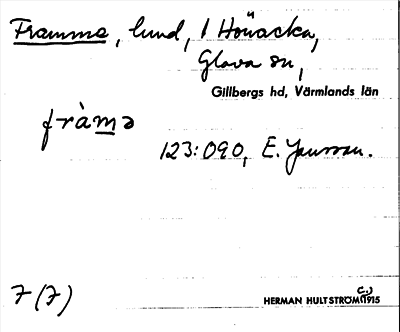 Framme, lund, 1 Höüacka,
Glava sn,
Gillbergs hd, Värmlands län
fràmə
123:090, E. Jansson.
7 (7)
HERMAN HULTSTRÖM (c.) 1915